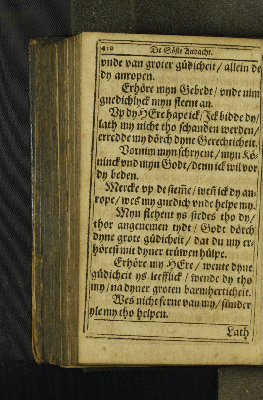 410 De Söste Andacht.
vnde van groter güdicheit / allein de
dy anropen.
Erhöre myn Gebedt / vnde nim
gnedichlyck myn fleent an.
Vp dy HEre hape ick / Ick bidde dy /
lath my nicht tho schanden werden /
erredde my dörch dyne Gerechticheit.
Vornim myn schryent / myn Kö-
ninck vnd myn Godt / denn ick wil vor
dy beden.
Mercke vp de stem̃e / weñ ick dy an-
rope / wes my gnedich vnde help my.
Myn flehent ys stedes tho dy /
thor angenemen tydt / Godt dörch
dyne grote güdicheit / dat du my er-
hörest mit dyner trüwen hülpe.
Erhöre my HEre / wente dyne
güdicheit ys leefflick / wende dy tho
my / na dyner groten barmherticheit.
Wes nicht ferne van my / sünder
yle my tho helpen.
Lath